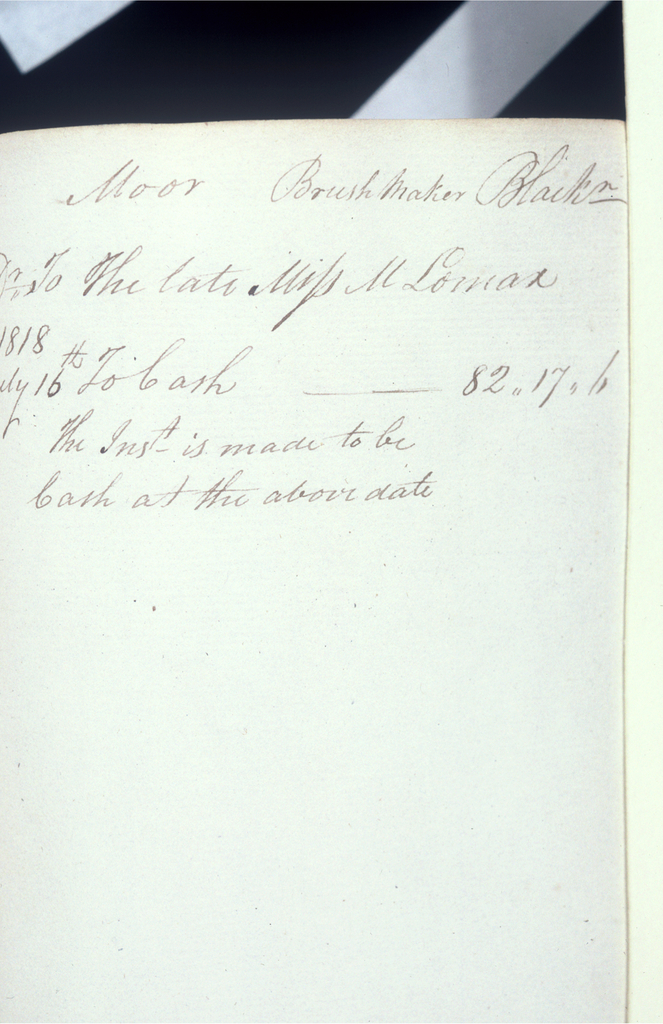 Moor Brush Maker Blackn
Dr. To The late Miss M Lomax
1818
July 16th To Cash 82 „ 17 „ 6
The Inst is made to be
Cash at the above date